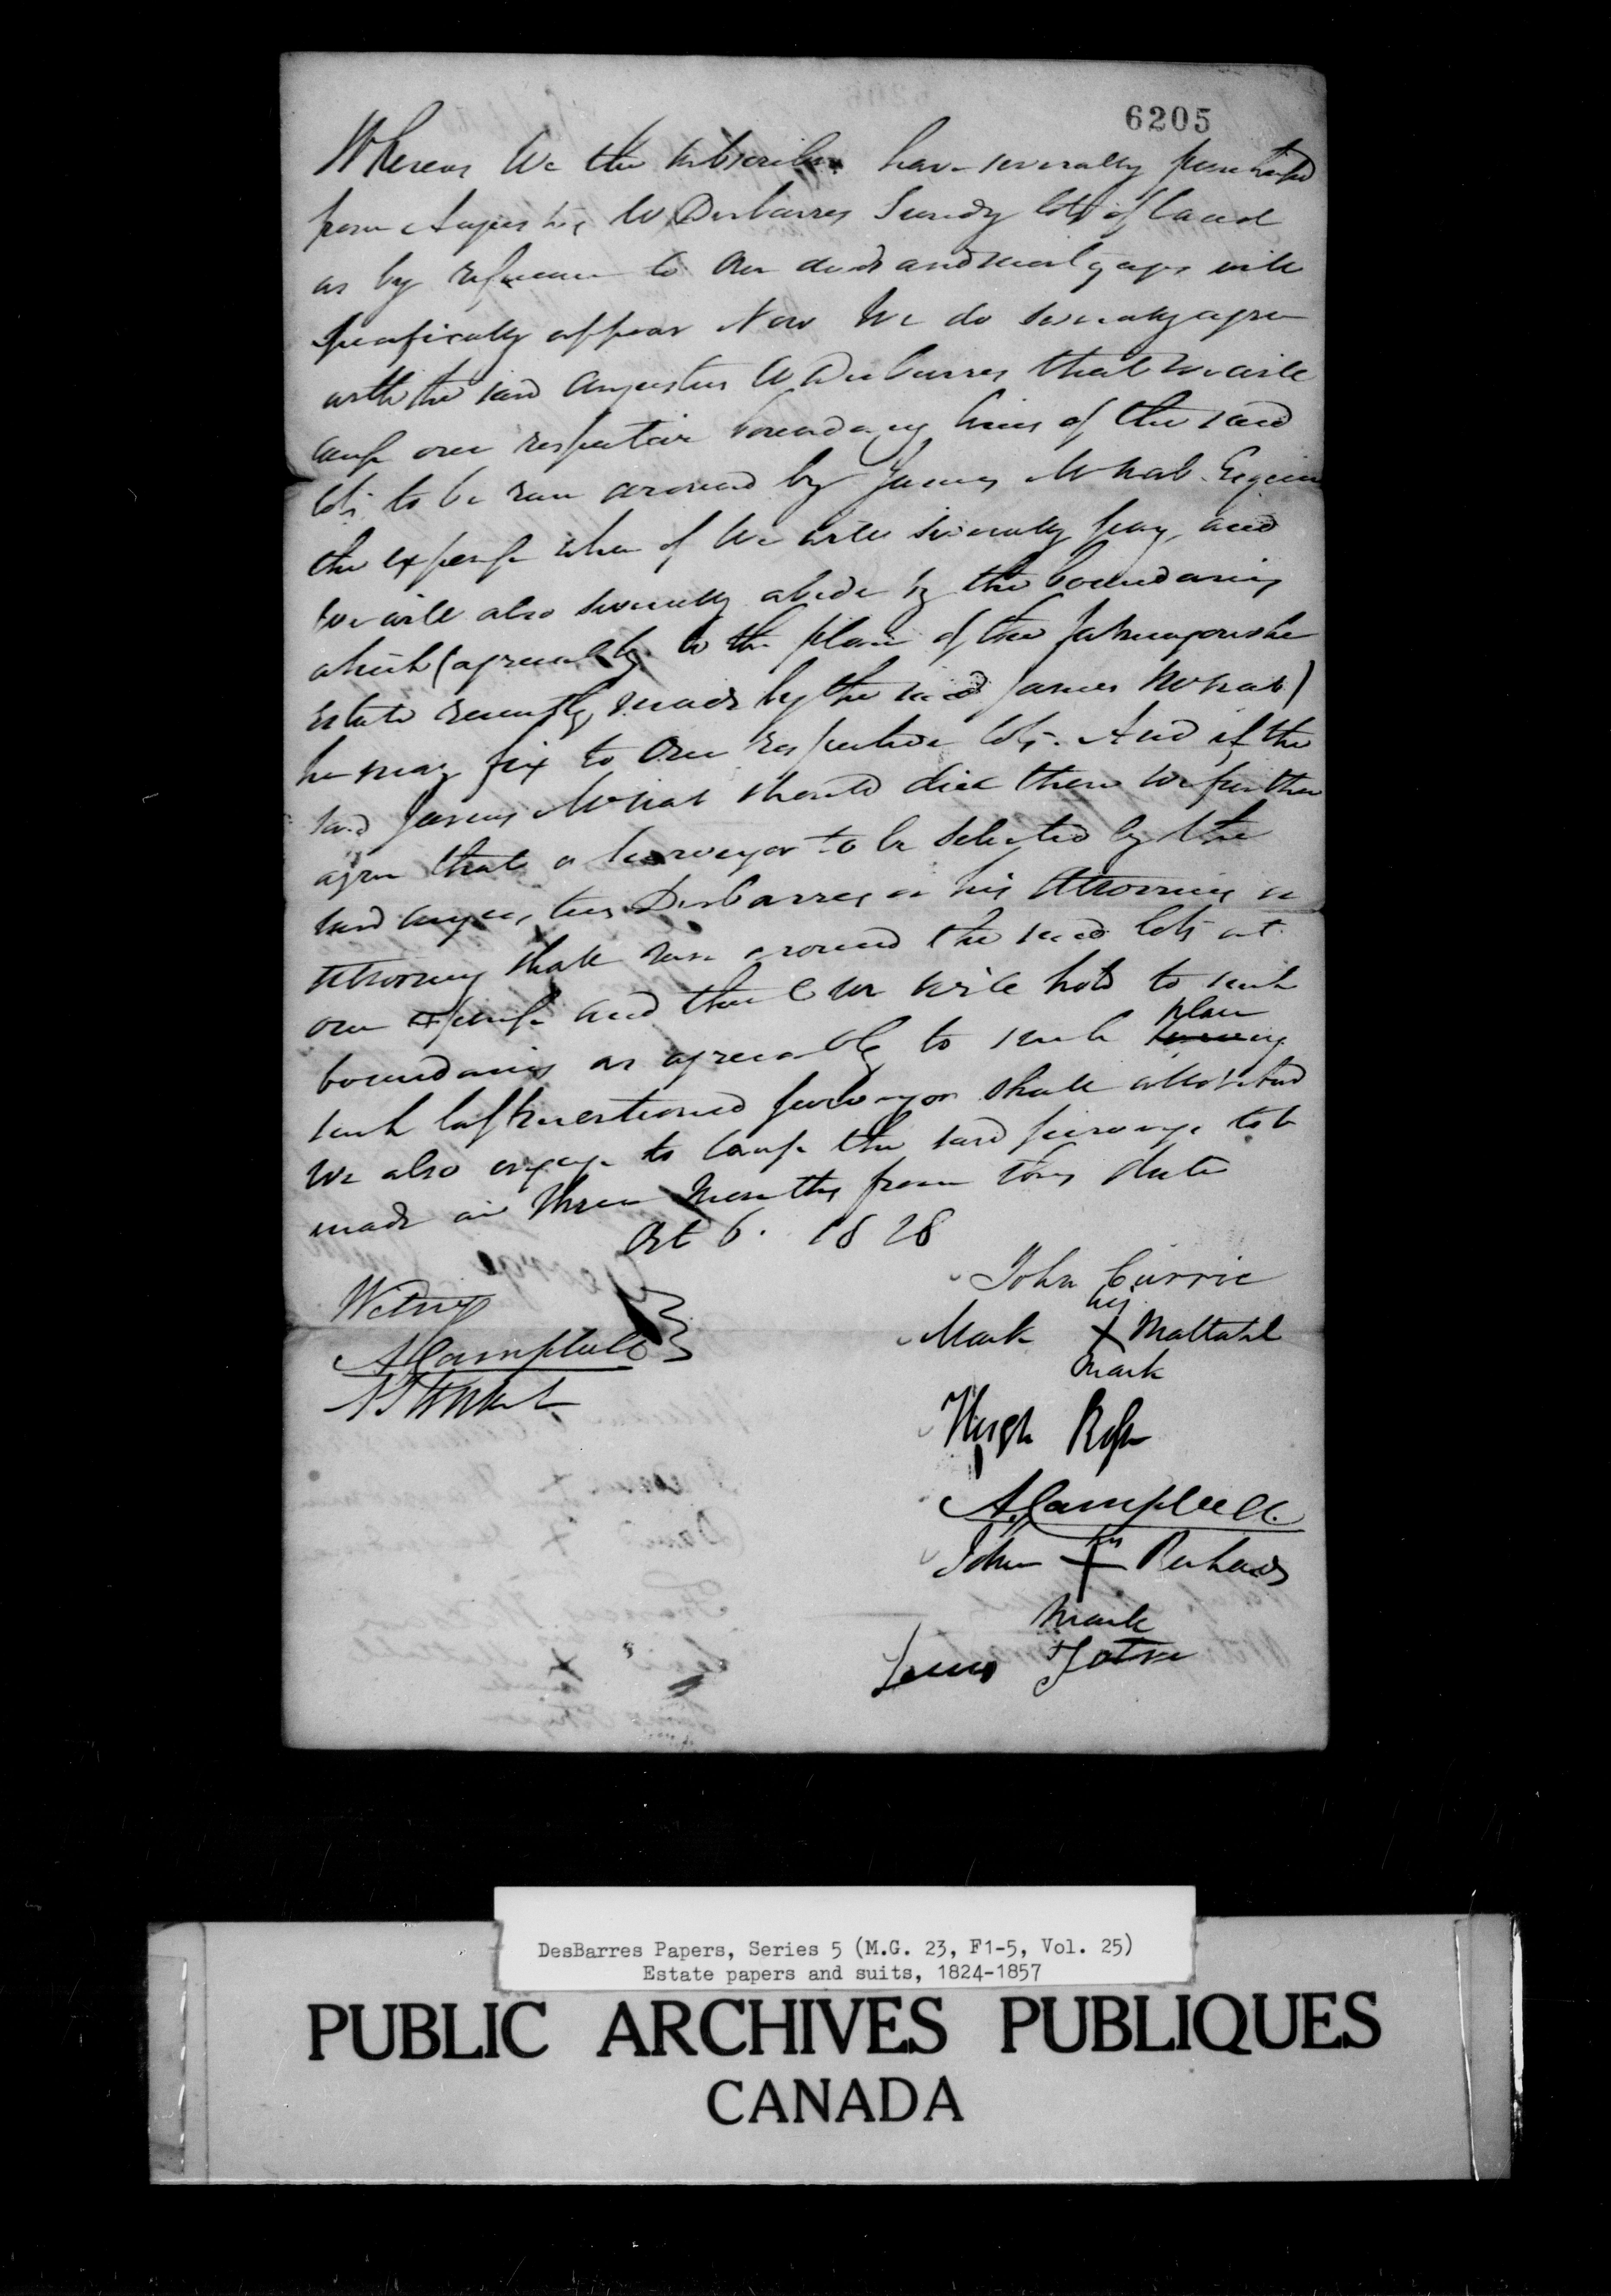 6205
Whereas We the subscribers have severally purchased
from Augustus W Desbarres Sundry lots of land
as by reference to our deeds and mortgages will
specifically appear Now We do severally agree
with the said Augustus W Desbarres that we will
cause our respective boundary lines of the said
lots to be run around by James McNab Esquire
the expense where of We will severally pay, and
we will also severally abide by the boundaries
which (agreeably to the plan of the Tatmagouche
Estate recently made by the said James McNab)
he may fix to our respective lots. And if the
said James McNab should die then we further
agree that a Surveyor to be selected by the
said Augustus DesBarres or his Attornies or
Attorney shall run around the said lots at
our expense and that we will hold to such
boundaries as agreeably to such plan
such last mentioned surveyor shall allot And
We also engage to cause the said surveys to be
made in three months from this date
Oct 6. 1828
Witness
A Campbell
John Currie
his
Mark X Mattatal
mark
Hugh Ross
A. Campbell
his
John + Richards
mark
DesBarres Papers, Series 5 (M.G. 23, F1-5, Vol. 25)
Estate papers and suits, 1824-1857
PUBLIC ARCHIVES PUBLIQUES
CANADA